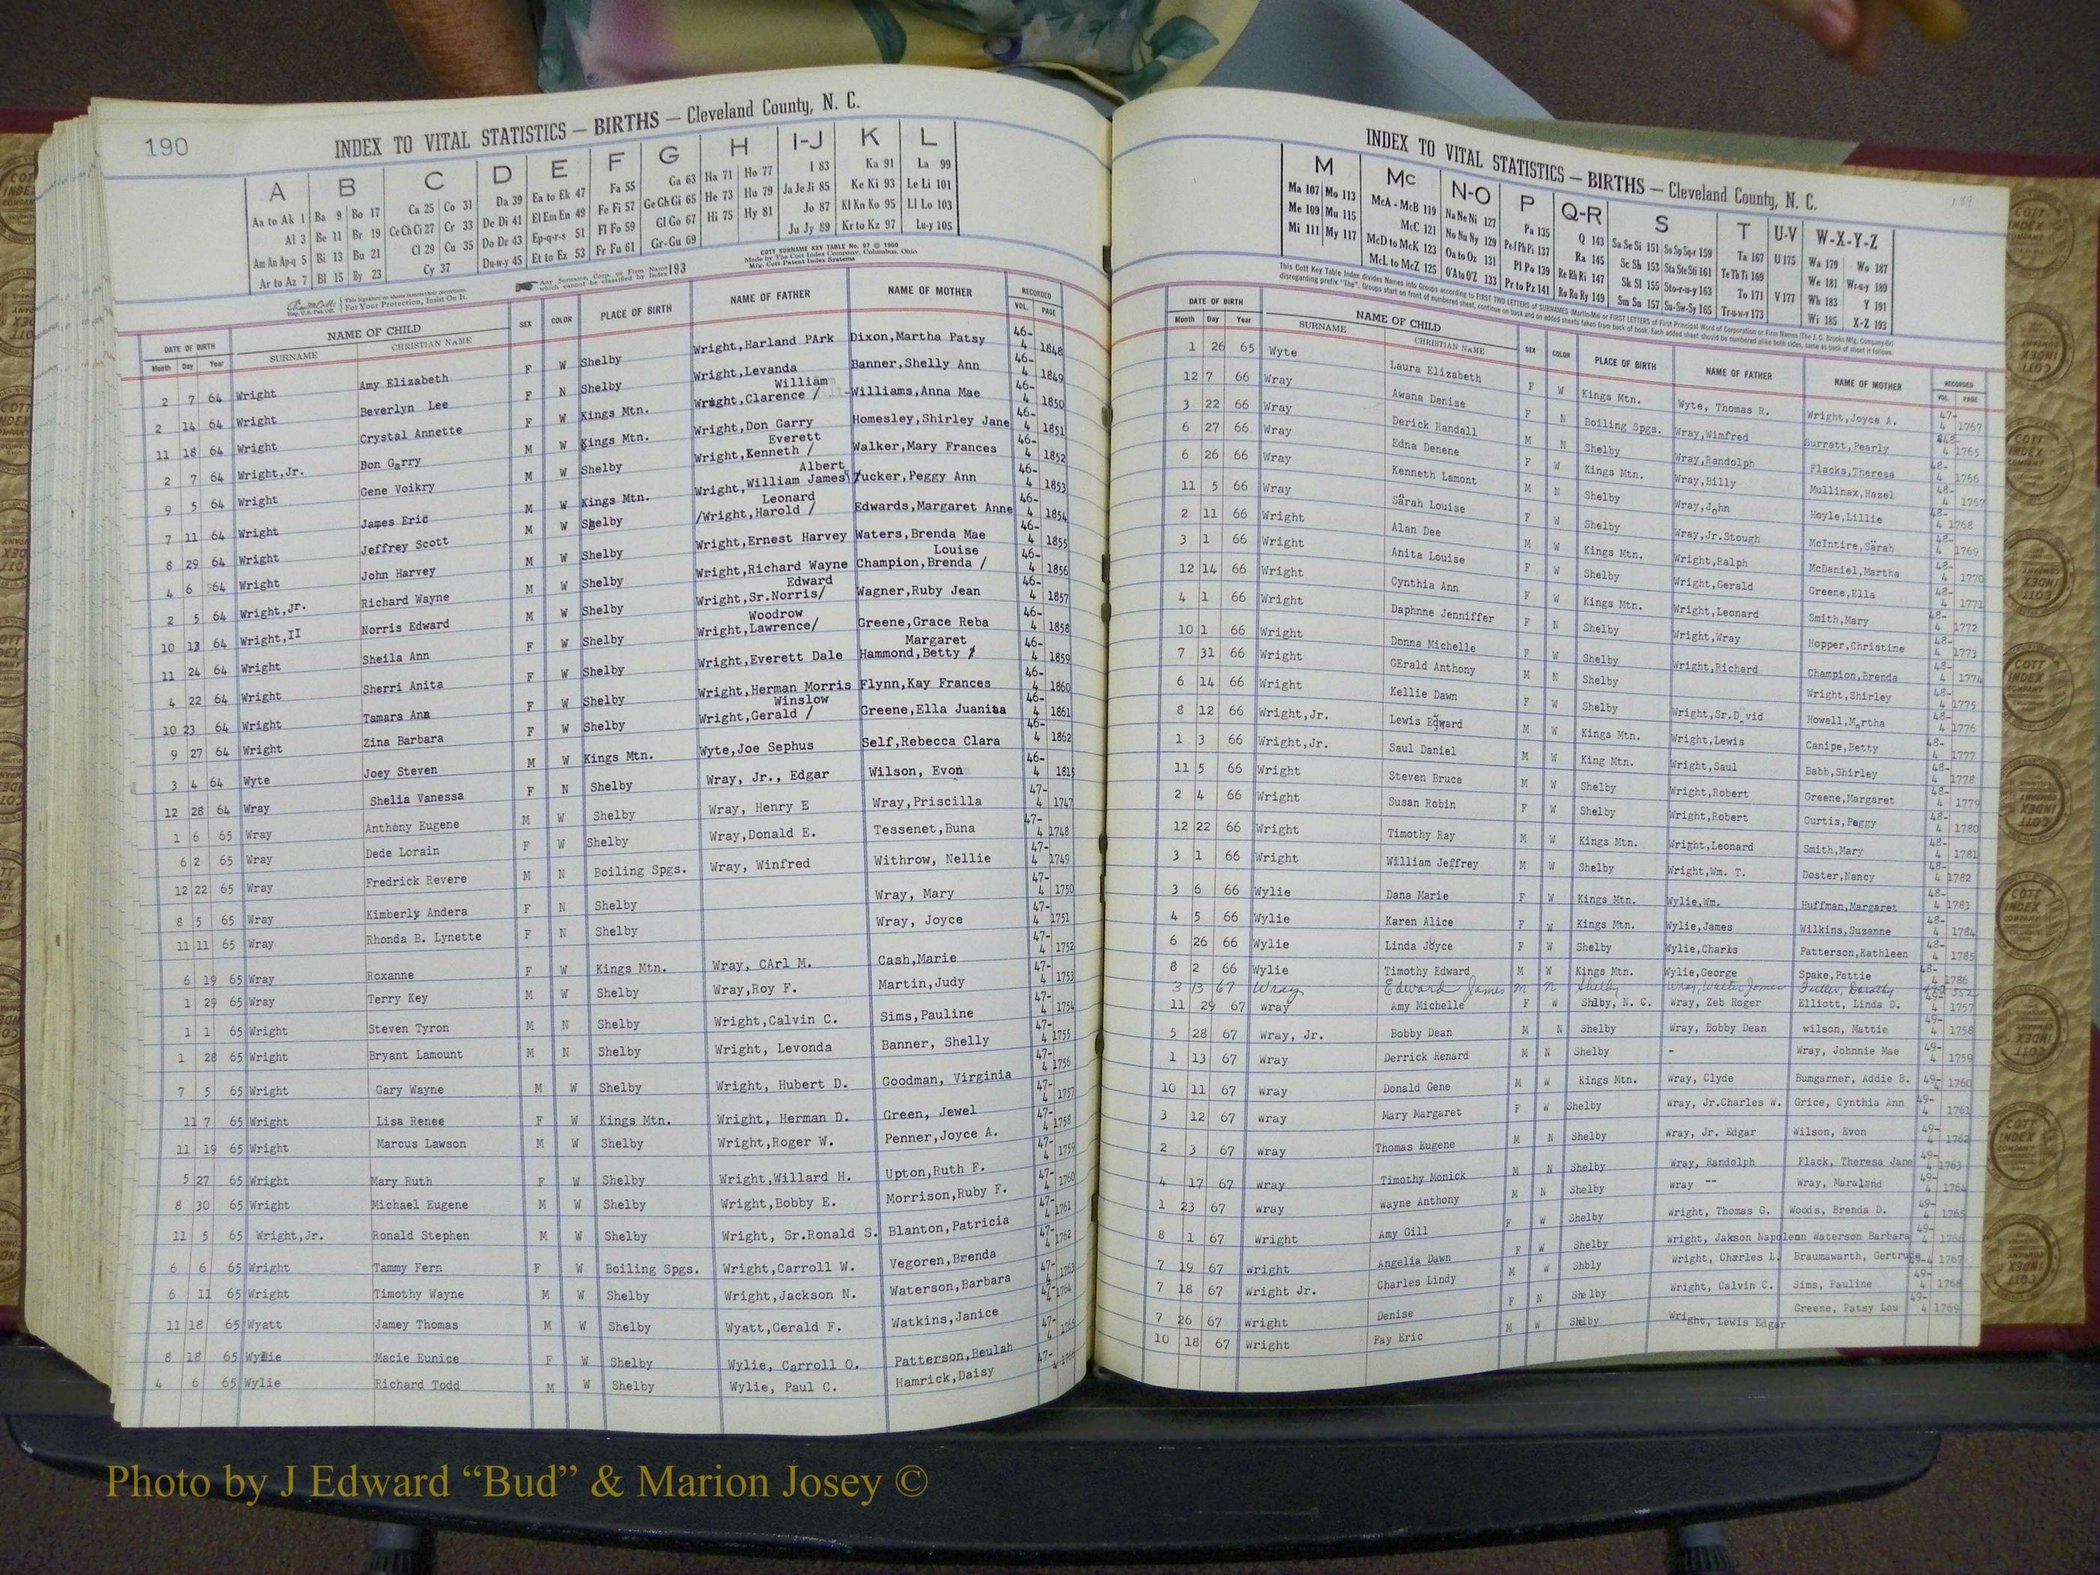 190
INDEX TO VITAL STATISTICS — BIRTHS — Cleveland County, N. C.
A B C D E F G H I-J K L
Aa to Ak 1 Ba 9 Bo 17 Ca 25 Co 31 Da 39 Ea to Ek 47 Fa 55 Ga 63 Ha 71 Ho 77 I 83 Ka 91 La 99
Al 3 Be 11 Br 19 Ce Ch Ci 27 Cr 33 De Di 41 El Em En 49 Fe Fi 57 Ge Gh Gi 65 He 73 Hu 79 Ja Je Ji 85 Ke Ki 93 Le Li 101
Am An Ap-q 5 Bi 13 Bu 21 Cl 29 Cu 35 Do Dr 43 Ep-q-r-s 51 Fl Fo 59 Gl Go 67 Hi 75 Hy 81 Jo 87 Kl Kn Ko 95 Ll Lo 103
Ar to Az 7 Bl 15 By 23 Cy 37 Du-w-y 45 Et to Ez 53 Fr Fu 61 Gr-Gu 69 Ju Jy 89 Kr to Kz 97 Lu-y 105
COTT SURNAME KEY TABLE No. 97 © 1960
Made by The Cott Index Company, Columbus, Ohio
Mfg. Cott Patent Index Systems
Any Surname, Corp. or Firm Name which cannot be classified by Index 193
For Your Protection, Insist On It.
DATE OF BIRTH NAME OF CHILD SEX COLOR PLACE OF BIRTH NAME OF FATHER NAME OF MOTHER RECORDED
Month Day Year SURNAME CHRISTIAN NAME VOL. PAGE
2 7 64 Wright Amy Elizabeth F W Shelby Wright,Harland PArk Dixon,Martha Patsy 46-4 1848
2 14 64 Wright Beverlyn Lee F N Shelby Wright,Levanda Banner,Shelly Ann 46-4 1849
11 18 64 Wright Crystal Annette F W Kings Mtn. Wright,Clarence / William Williams,Anna Mae 46-4 1850
2 7 64 Wright,Jr. Bon Garry M W Kings Mtn. Wright,Don Garry Homesley,Shirley Jane 46-4 1851
9 5 64 Wright Gene Voikry M W Shelby Wright,Kenneth / Everett Walker,Mary Frances 46-4 1852
7 11 64 Wright James Eric M W Kings Mtn. Wright,William James Albert Tucker,Peggy Ann 46-4 1853
8 29 64 Wright Jeffrey Scott M W Shelby /Wright,Harold / Leonard Edwards,Margaret Anne 46-4 1854
4 6 64 Wright John Harvey M W Shelby Wright,Ernest Harvey Waters,Brenda Mae 46-4 1855
2 5 64 Wright,Jr. Richard Wayne M W Shelby Wright,Richard Wayne Champion,Brenda / Louise 46-4 1856
10 13 64 Wright,II Norris Edward M W Shelby Wright,Sr.Norris/ Edward Wagner,Ruby Jean 46-4 1857
11 24 64 Wright Sheila Ann F W Shelby Wright,Lawrence/ Woodrow Greene,Grace Reba 46-4 1858
4 22 64 Wright Sherri Anita F W Shelby Wright,Everett Dale Hammond,Betty / Margaret 46-4 1859
10 23 64 Wright Tamara Ann F W Shelby Wright,Herman Morris Flynn,Kay Frances 46-4 1860
9 27 64 Wright Zina Barbara F W Shelby Wright,Gerald / Winslow Greene,Ella Juanita 46-4 1861
3 4 64 Wyte Joey Steven M W Kings Mtn. Wyte,Joe Sephus Self,Rebecca Clara 46-4 1862
12 28 64 Wray Shelia Vanessa F N Shelby Wray, Jr., Edgar Wilson, Evon 46-4 181
1 6 65 Wray Anthony Eugene M W Shelby Wray, Henry E Wray,Priscilla 47-4 1747
6 2 65 Wray Dede Lorain F W Shelby Wray,Donald E. Tessenet,Buna 47-4 1748
12 22 65 Wray Fredrick Revere M N Boiling Spgs. Wray, Winfred Withrow, Nellie 47-4 1749
8 5 65 Wray Kimberly Andera F N Shelby Wray, Mary 47-4 1750
11 11 65 Wray Rhonda B. Lynette F N Shelby Wray, Joyce 47-4 1751
6 19 65 Wray Roxanne F W Kings Mtn. Wray, CArl M. Cash,Marie 47-4 1752
1 29 65 Wray Terry Key M W Shelby Wray,Roy F. Martin,Judy 47-4 1753
1 1 65 Wright Steven Tyron M N Shelby Wright,Calvin C. Sims,Pauline 47-4 1754
1 28 65 Wright Bryant Lamount M N Shelby Wright, Levonda Banner, Shelly 47-4 1755
7 5 65 Wright Gary Wayne M W Shelby Wright, Hubert D. Goodman, Virginia 47-4 1756
11 7 65 Wright Lisa Renee F W Kings Mtn. Wright, Herman D. Green, Jewel 47-4 1757
11 19 65 Wright Marcus Lawson M W Shelby Wright,Roger W. Penner,Joyce A. 47-4 1758
5 27 65 Wright Mary Ruth F W Shelby Wright,Willard H. Upton,Ruth F. 47-4 1759
8 30 65 Wright Michael Eugene M W Shelby Wright,Bobby E. Morrison,Ruby F. 47-4 1760
11 5 65 Wright,Jr. Ronald Stephen M W Shelby Wright, Sr.Ronald S. Blanton,Patricia 47-4 1761
6 6 65 Wright Tammy Fern F W Boiling Spgs. Wright,Carroll W. Vegoren,Brenda 47-4 1762
6 11 65 Wright Timothy Wayne M W Shelby Wright,Jackson N. Waterson,Barbara 47-4 1763
11 18 65 Wyatt Jamey Thomas M W Shelby Wyatt,Gerald F. Watkins,Janice 47-4 1764
8 18 65 Wylie Macie Eunice F W Shelby Wylie, Carroll O. Patterson,Beulah 47-4 1765
4 6 65 Wylie Richard Todd M W Shelby Wylie, Paul C. Hamrick,Daisy 47-4 1766
189
INDEX TO VITAL STATISTICS — BIRTHS — Cleveland County, N. C.
M Mc N-O P Q-R S T U-V W-X-Y-Z
Ma 107 Mo 113 McA - McB 119 Na Ne Ni 127 Pa 135 Q 143 Sa Se Si 151 So Sp Sq-r 159 Ta 167 U 175 Wa 179 Wo 187
Me 109 Mu 115 McC 121 No Nu Ny 129 Pe-f Ph Pi 137 Ra 145 Sc Sh 153 Sta Ste Sti 161 Te Th Ti 169 We 181 Wr-u-y 189
Mi 111 My 117 McD to McK 123 Oa to Oz 131 Pl Po 139 Re Rh Ri 147 Sk Sl 155 Sto-r-u-y 163 To 171 V 177 Wh 183 Y 191
McL to McZ 125 O'A to O'Z 133 Pr to Pz 141 Ro Ru Ry 149 Sm Sn 157 Su-Sw-Sy 165 Tr-u-w-y 173 Wi 185 X-Z 193
This Cott Key Table Index divides Names into Groups according to FIRST TWO LETTERS of SURNAMES (Martin-Ma) or FIRST LETTERS of First Principal Word of Corporation or Firm Names
disregarding prefix "The". Groups start on front of numbered sheet, continue on back and on added sheets taken from back of book. Each added sheet should be numbered alike both sides, same as back of sheet it follows.
DATE OF BIRTH NAME OF CHILD SEX COLOR PLACE OF BIRTH NAME OF FATHER NAME OF MOTHER RECORDED
Month Day Year SURNAME CHRISTIAN NAME VOL. PAGE
1 26 65 Wyte Laura Elizabeth F W Kings Mtn. Wyte, Thomas R. Wright,Joyce A. 47-4 1767
12 7 66 Wray Awana Denise F N Boiling Spgs. Wray,Wimfred Surratt,Pearly 48-4 1765
3 22 66 Wray Derick Randall M N Shelby Wray,Randolph Flacks,Theresa 48-4 1766
6 27 66 Wray Edna Denene F W Kings Mtn. Wray,Billy Mullinax,Hazel 48-4 1767
6 26 66 Wray Kenneth Lamont M N Shelby Wray,John Hoyle,Lillie 48-4 1768
11 5 66 Wray Sarah Louise F W Shelby Wray,Jr.Stough McIntire,Sarah 48-4 1769
2 11 66 Wright Alan Dee M W Kings Mtn. Wright,Ralph McDaniel,Martha 48-4 1770
3 1 66 Wright Anita Louise F W Shelby Wright,Gerald Greene,Ella 48-4 1771
12 14 66 Wright Cynthia Ann F W Kings Mtn. Wright,Leonard Smith,Mary 48-4 1772
4 1 66 Wright Daphnne Jenniffer F N Shelby Wright,Wray Hopper,Christine 48-4 1773
10 1 66 Wright Donna Michelle F W Shelby Wright,Richard Champion,Brenda 48-4 1774
7 31 66 Wright GErald Anthony M N Shelby Wright,Shirley 48-4 1775
6 14 66 Wright Kellie Dawn F W Shelby Wright,Sr.David Howell,Martha 48-4 1776
8 12 66 Wright,Jr. Lewis Edward M W Kings Mtn. Wright,Lewis Canipe,Betty 48-4 1777
1 3 66 Wright,Jr. Saul Daniel M W King Mtn. Wright,Saul Babb,Shirley 48-4 1778
11 5 66 Wright Steven Bruce M W Shelby Wright,Robert Greene,Margaret 48-4 1779
2 4 66 Wright Susan Robin F W Shelby Wright,Robert Curtis,Peggy 48-4 1780
12 22 66 Wright Timothy Ray M W Kings Mtn. Wright,Leonard Smith,Mary 48-4 1781
3 1 66 Wright William Jeffrey M W Shelby Wright,Wm. T. Doster,Nancy 48-4 1782
3 6 66 Wylie Dana Marie F W Kings Mtn. Wylie,Wm. Huffman,Margaret 48-4 1783
4 5 66 Wylie Karen Alice F W Kings Mtn. Wylie,James Wilkins,Suzanne 48-4 1784
6 26 66 Wylie Linda Joyce F W Shelby Wylie,Charls Patterson,Kathleen 48-4 1785
8 2 66 Wylie Timothy Edward M W Kings Mtn. Wylie,George Spake,Pattie 48-4 1786
3 13 67 Wray Edward James M N Shelby Wray, Walter James Fuller, Dorothy
11 29 67 Wray Amy Michelle F W Shelby, N. C. Wray, Zeb Roger Elliott, Linda D. 49-4 1757
5 28 67 Wray, Jr. Bobby Dean M N Shelby Wray, Bobby Dean wilson, Mattie 49-4 1758
1 13 67 Wray Derrick Renard M N Shelby - Wray, Johnnie Mae 49-4 1759
10 11 67 Wray Donald Gene M W Kings Mtn. Wray, Clyde Bumgarner, Addie B. 49-4 1760
3 12 67 Wray Mary Margaret F W Shelby Wray, Jr.Charles W. Grice, Cynthia Ann 49-4 1761
2 3 67 Wray Thomas Eugene M N Shelby Wray, Jr. Edgar Wilson, Evon 49-4 1762
4 17 67 Wray Timothy Monick M N Shelby Wray, Randolph Flack, Theresa Jane 49-4 1763
1 23 67 Wray Wayne Anthony M N Shelby Wray -- Wray, Maralend 49-4 1764
8 1 67 Wright Amy Gill F W Shelby Wright, Thomas G. Woods, Brenda D. 49-4 1765
7 19 67 Wright Angelia Dawn F W Shelby Wright, Jakson Napoleon Waterson Barbara 49-4 1766
7 18 67 Wright Jr. Charles Lindy M W Shbly Wright, Charles L. Braumawarth, Gertrude 49-4 1767
7 26 67 Wright Denise F N Shelby Wright, Calvin C. Sims, Pauline 49-4 1768
10 18 67 Wright Fay Eric M W Shelby Wright, Lewis Edgar Greene, Patsy Lou 49-4 1769
Photo by J Edward “Bud” & Marion Josey ©